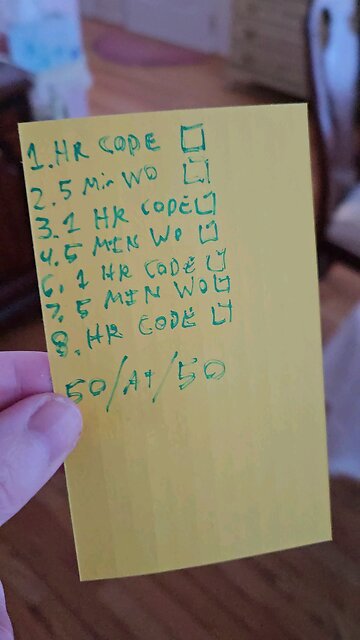 1. HR CODE
2. 5 Min WO
3. 1 HR CODE
4. 5 MIN WO
6. 1 HR CODE
7. 5 MIN WO
8. HR CODE
50/At/50